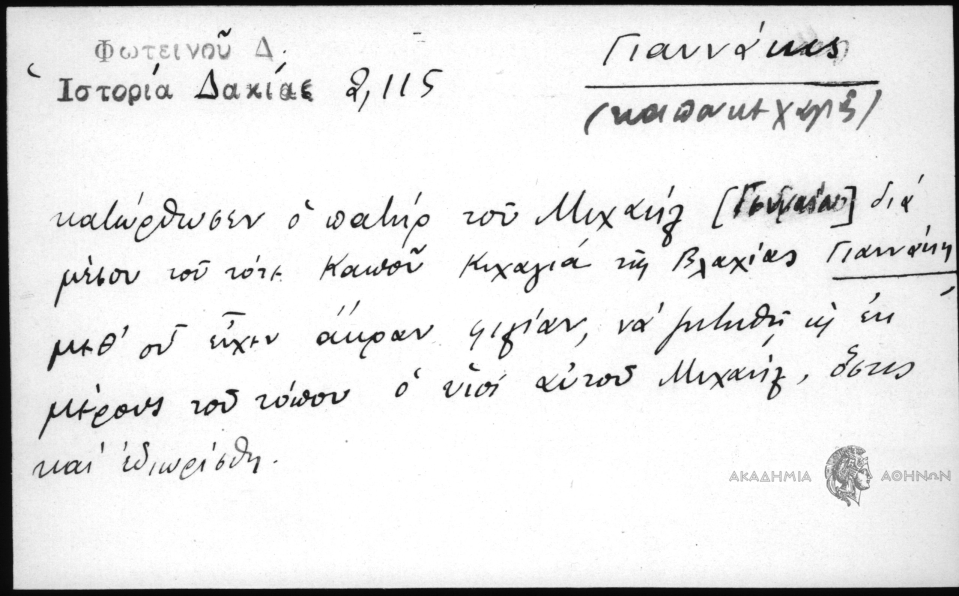 Φωτεινοῦ Δ.
Ἱστορία Δακίας 2,115
Γιαννάκης
(καπακεχαγιᾶς)
κατώρθωσεν ὁ πατήρ τοῦ Μιχαήλ [] διά
μέσου τοῦ τότε Καποῦ Κεχαγιά τῆς Βλαχίας Γιαννάκη
μεθ' οὗ εἶχεν ἄκραν φιλίαν, νά ζητηθῇ ἐκ
μέρους τοῦ τόπου ὁ υἱός αὐτοῦ Μιχαήλ, ὅστις
καί ἐδιωρίσθη.
ΑΚΑΔΗΜΙΑ ΑΘΗΝΩΝ